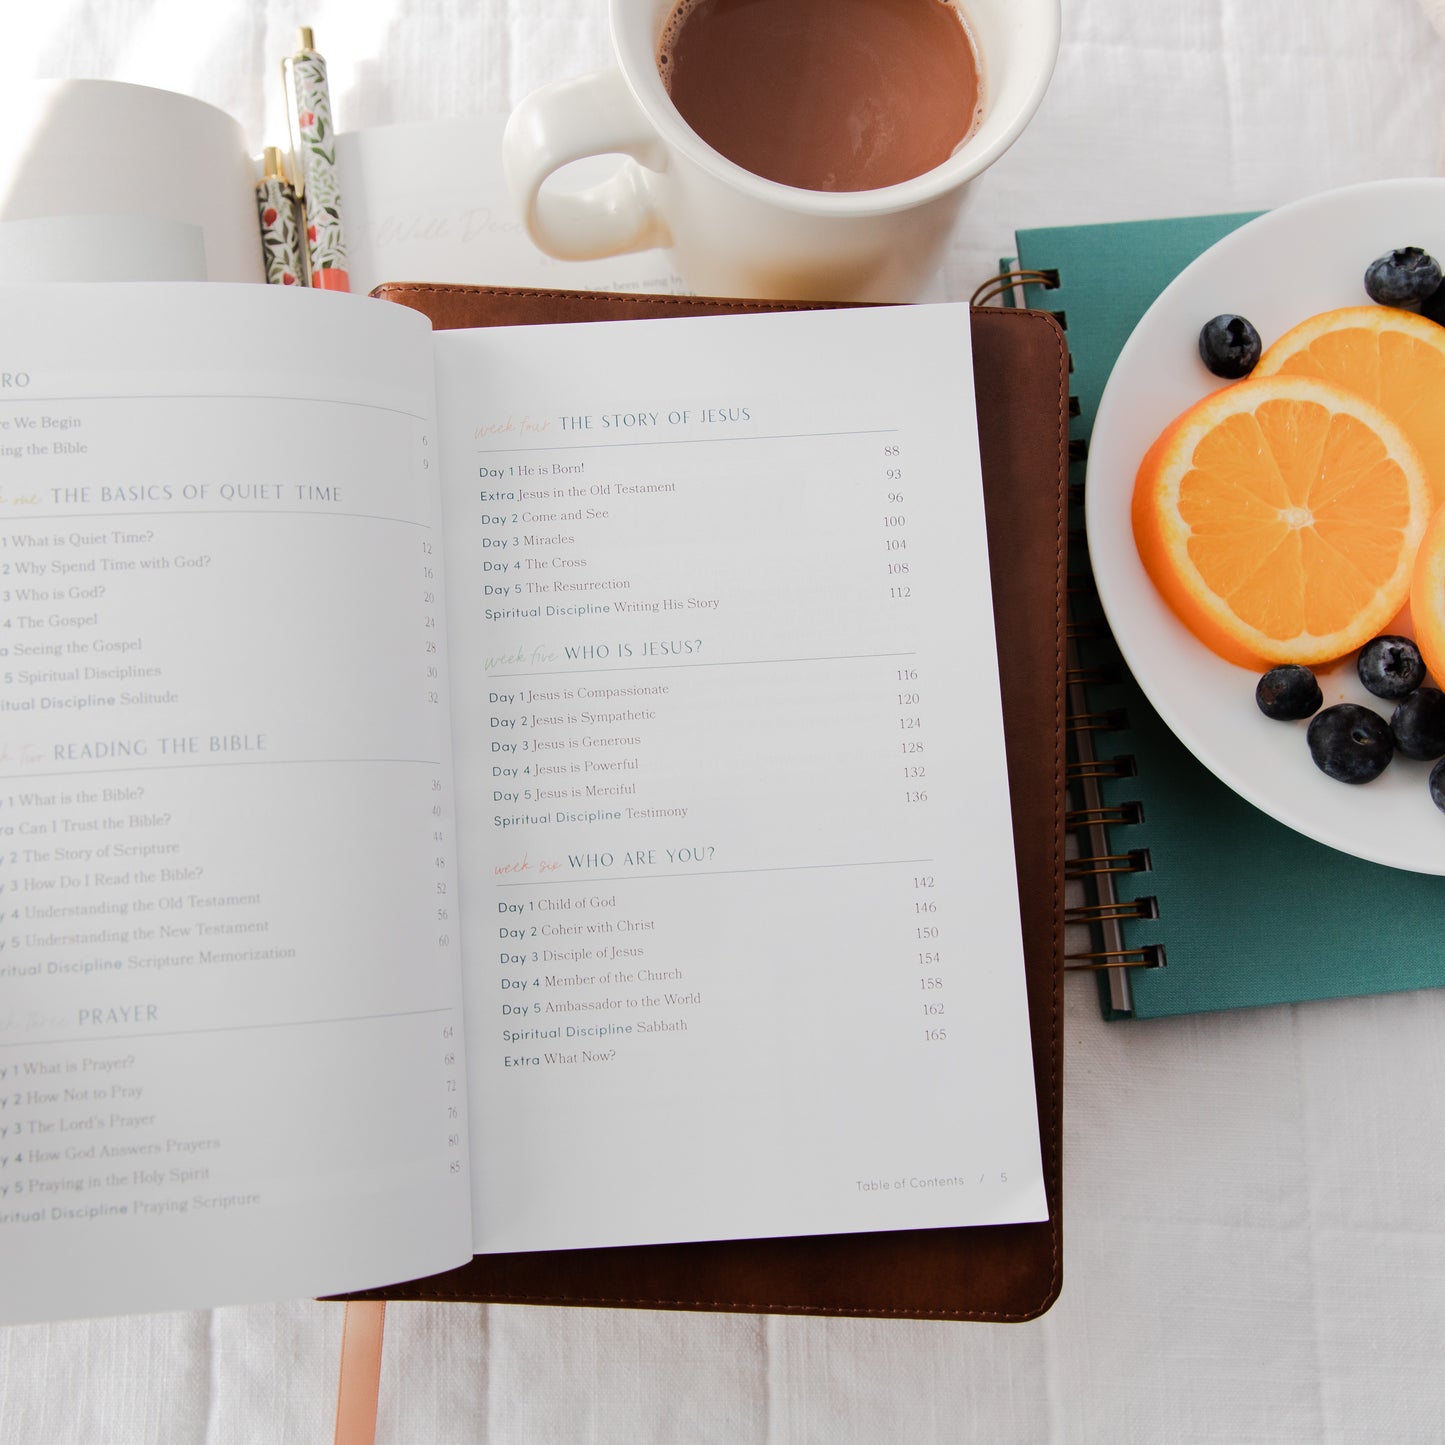 Will
have been sung by
RO
e We Begin 6
ing the Bible 9
one THE BASICS OF QUIET TIME
1 What is Quiet Time? 12
2 Why Spend Time with God? 16
3 Who is God? 20
4 The Gospel 24
a Seeing the Gospel 28
5 Spiritual Disciplines 30
itual Discipline Solitude 32
k two READING THE BIBLE
y 1 What is the Bible? 36
ra Can I Trust the Bible? 40
y 2 The Story of Scripture 44
y 3 How Do I Read the Bible? 48
y 4 Understanding the Old Testament 52
y 5 Understanding the New Testament 56
ritual Discipline Scripture Memorization 60
ek three PRAYER
y 1 What is Prayer? 64
y 2 How Not to Pray 68
y 3 The Lord's Prayer 72
y 4 How God Answers Prayers 76
y 5 Praying in the Holy Spirit 80
iritual Discipline Praying Scripture 85
week four THE STORY OF JESUS
Day 1 He is Born! 88
Extra Jesus in the Old Testament 93
Day 2 Come and See 96
Day 3 Miracles 100
Day 4 The Cross 104
Day 5 The Resurrection 108
Spiritual Discipline Writing His Story 112
week five WHO IS JESUS?
Day 1 Jesus is Compassionate 116
Day 2 Jesus is Sympathetic 120
Day 3 Jesus is Generous 124
Day 4 Jesus is Powerful 128
Day 5 Jesus is Merciful 132
Spiritual Discipline Testimony 136
week six WHO ARE YOU?
Day 1 Child of God 142
Day 2 Coheir with Christ 146
Day 3 Disciple of Jesus 150
Day 4 Member of the Church 154
Day 5 Ambassador to the World 158
Spiritual Discipline Sabbath 162
Extra What Now? 165
Table of Contents / 5